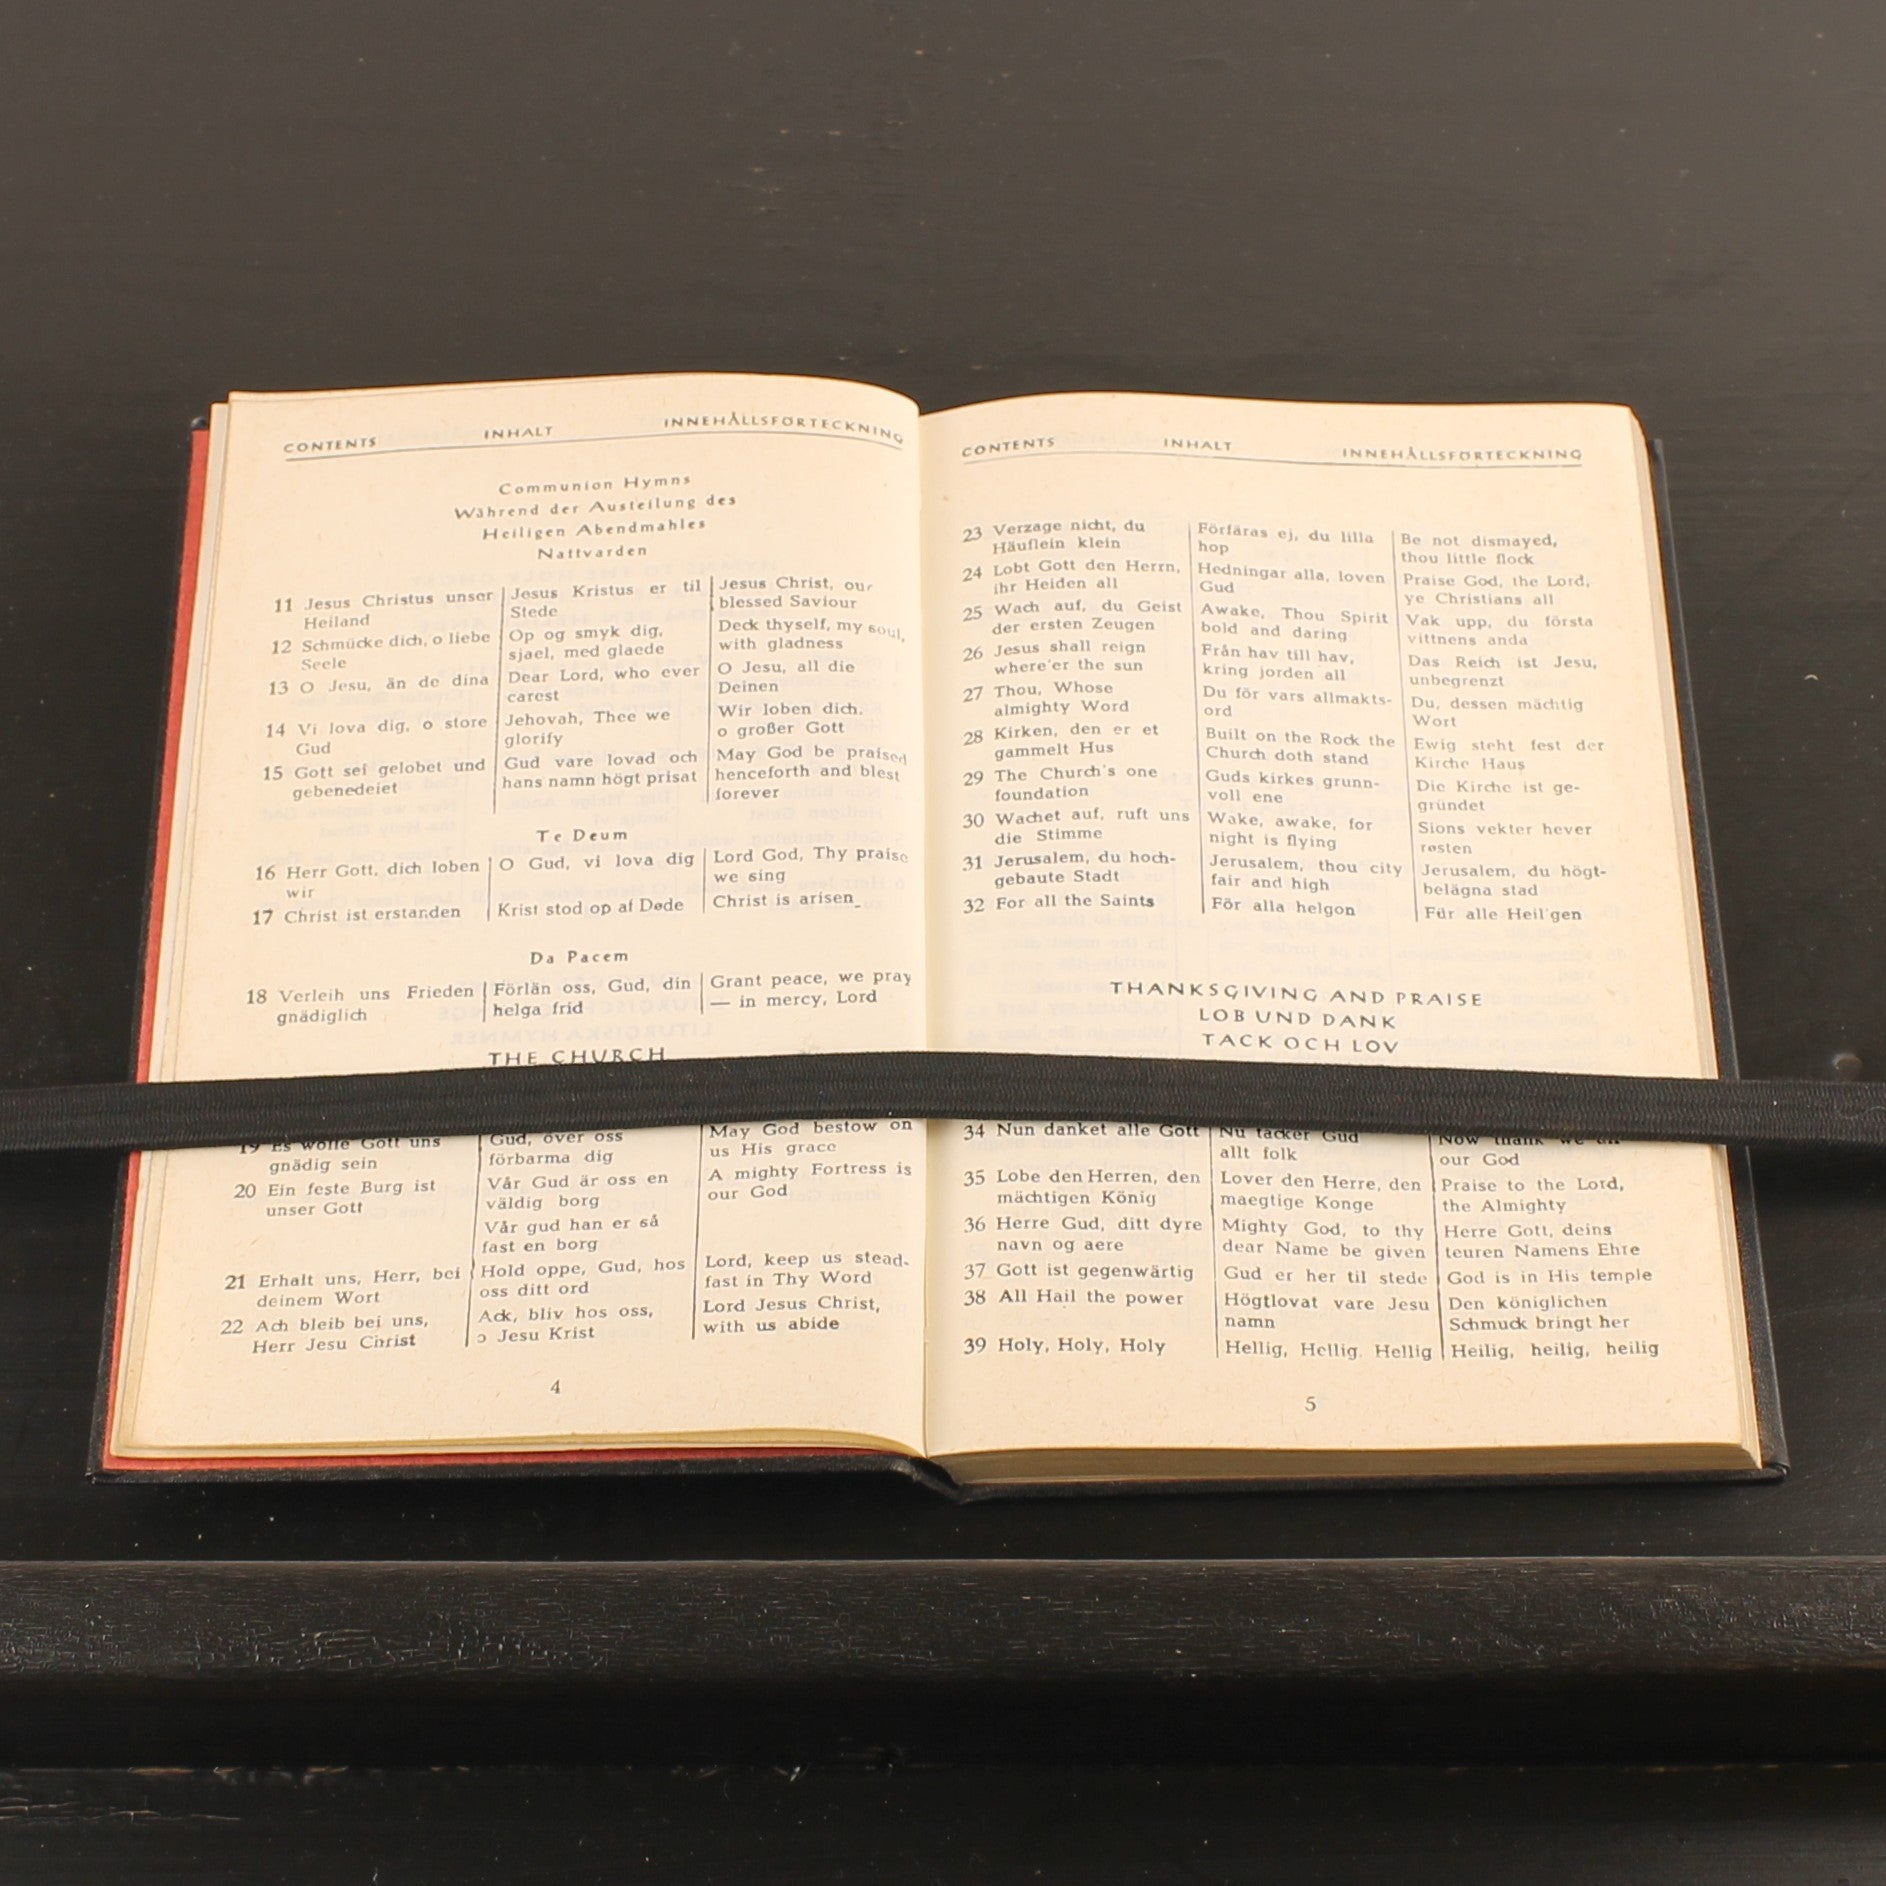 CONTENTS INHALT INNEHÅLLSFÖRTECKNING
Communion Hymns
Während der Austeilung des
Heiligen Abendmahles
Nattvarden
11 Jesus Christus unser
Heiland
Jesus Kristus er til
Stede
Jesus Christ, our
blessed Saviour
12 Schmücke dich, o liebe
Seele
Op og smyk dig,
sjael, med glaede
Deck thyself, my soul,
with gladness
13 O Jesu, än de dina
Dear Lord, who ever
carest
O Jesu, all die
Deinen
14 Vi lova dig, o store
Gud
Jehovah, Thee we
glorify
Wir loben dich,
o großer Gott
15 Gott sei gelobet und
gebenedeiet
Gud vare lovad och
hans namn högt prisat
May God be praised
henceforth and blest
forever
Te Deum
16 Herr Gott, dich loben
wir
O Gud, vi lova dig
Lord God, Thy praise
we sing
17 Christ ist erstanden
Krist stod op af Døde
Christ is arisen
Da Pacem
18 Verleih uns Frieden
gnädiglich
Förlän oss, Gud, din
helga frid
Grant peace, we pray
— in mercy, Lord
THE CHURCH
19 Es wolle Gott uns
gnädig sein
Gud, över oss
förbarma dig
May God bestow on
us His grace
20 Ein feste Burg ist
unser Gott
Vår Gud är oss en
väldig borg
Vår gud han er så
fast en borg
A mighty Fortress is
our God
21 Erhalt uns, Herr, bei
deinem Wort
Hold oppe, Gud, hos
oss ditt ord
Lord, keep us stead-
fast in Thy Word
22 Ach bleib bei uns,
Herr Jesu Christ
Ack, bliv hos oss,
o Jesu Krist
Lord Jesus Christ,
with us abide
4
CONTENTS INHALT INNEHÅLLSFÖRTECKNING
23 Verzage nicht, du
Häuflein klein
Förfäras ej, du lilla
hop
Be not dismayed,
thou little flock
24 Lobt Gott den Herrn,
ihr Heiden all
Hedningar alla, loven
Gud
Praise God, the Lord,
ye Christians all
25 Wach auf, du Geist
der ersten Zeugen
Awake, Thou Spirit
bold and daring
Vak upp, du första
vittnens anda
26 Jesus shall reign
where'er the sun
Från hav till hav,
kring jorden all
Das Reich ist Jesu,
unbegrenzt
27 Thou, Whose
almighty Word
Du för vars allmakts-
ord
Du, dessen mächtig
Wort
28 Kirken, den er et
gammelt Hus
Built on the Rock the
Church doth stand
Ewig steht fest der
Kirche Haus
29 The Church's one
foundation
Guds kirkes grunn-
voll ene
Die Kirche ist ge-
gründet
30 Wachet auf, ruft uns
die Stimme
Wake, awake, for
night is flying
Sions vekter hever
røsten
31 Jerusalem, du hoch-
gebaute Stadt
Jerusalem, thou city
fair and high
Jerusalem, du högt-
belägna stad
32 For all the Saints
För alla helgon
Für alle Heil'gen
THANKSGIVING AND PRAISE
LOB UND DANK
TACK OCH LOV
34 Nun danket alle Gott
Nu tacker Gud
allt folk
Now thank we all
our God
35 Lobe den Herren, den
mächtigen König
Lover den Herre, den
maegtige Konge
Praise to the Lord,
the Almighty
36 Herre Gud, ditt dyre
navn og aere
Mighty God, to thy
dear Name be given
Herre Gott, deins
teuren Namens Ehre
37 Gott ist gegenwärtig
Gud er her til stede
God is in His temple
38 All Hail the power
Högtlovat vare Jesu
namn
Den königlichen
Schmuck bringt her
39 Holy, Holy, Holy
Hellig, Hellig, Hellig
Heilig, heilig, heilig
5